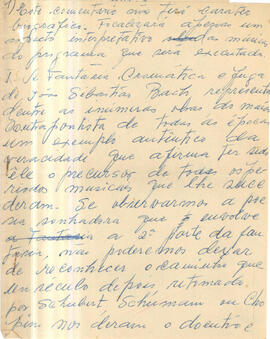 1) Este comentario não terá carater
biografico. Focalizará apenas um
aspecto interpretativo das musicas
do programa que será executado
1. A Fantasia Cromatica e fuga
de João Sebastião Bach representa
dentre as inumeras obras do maior
Contrapontista de todas as épocas
um exemplo autentico da
veracidade que afirma ter sido
ele o precursor de todos os pe-
riodos musicais que lhe suce-
deram. Se observarmos a poe
sia sonhadora que envolve
a Fantasia a 2ª parte da fan
tasia, não poderemos deixar
de reconhecer o caminho que
um seculo depois retimado
por Schubert Schumann ou Cho
pin nos deram o doentio e